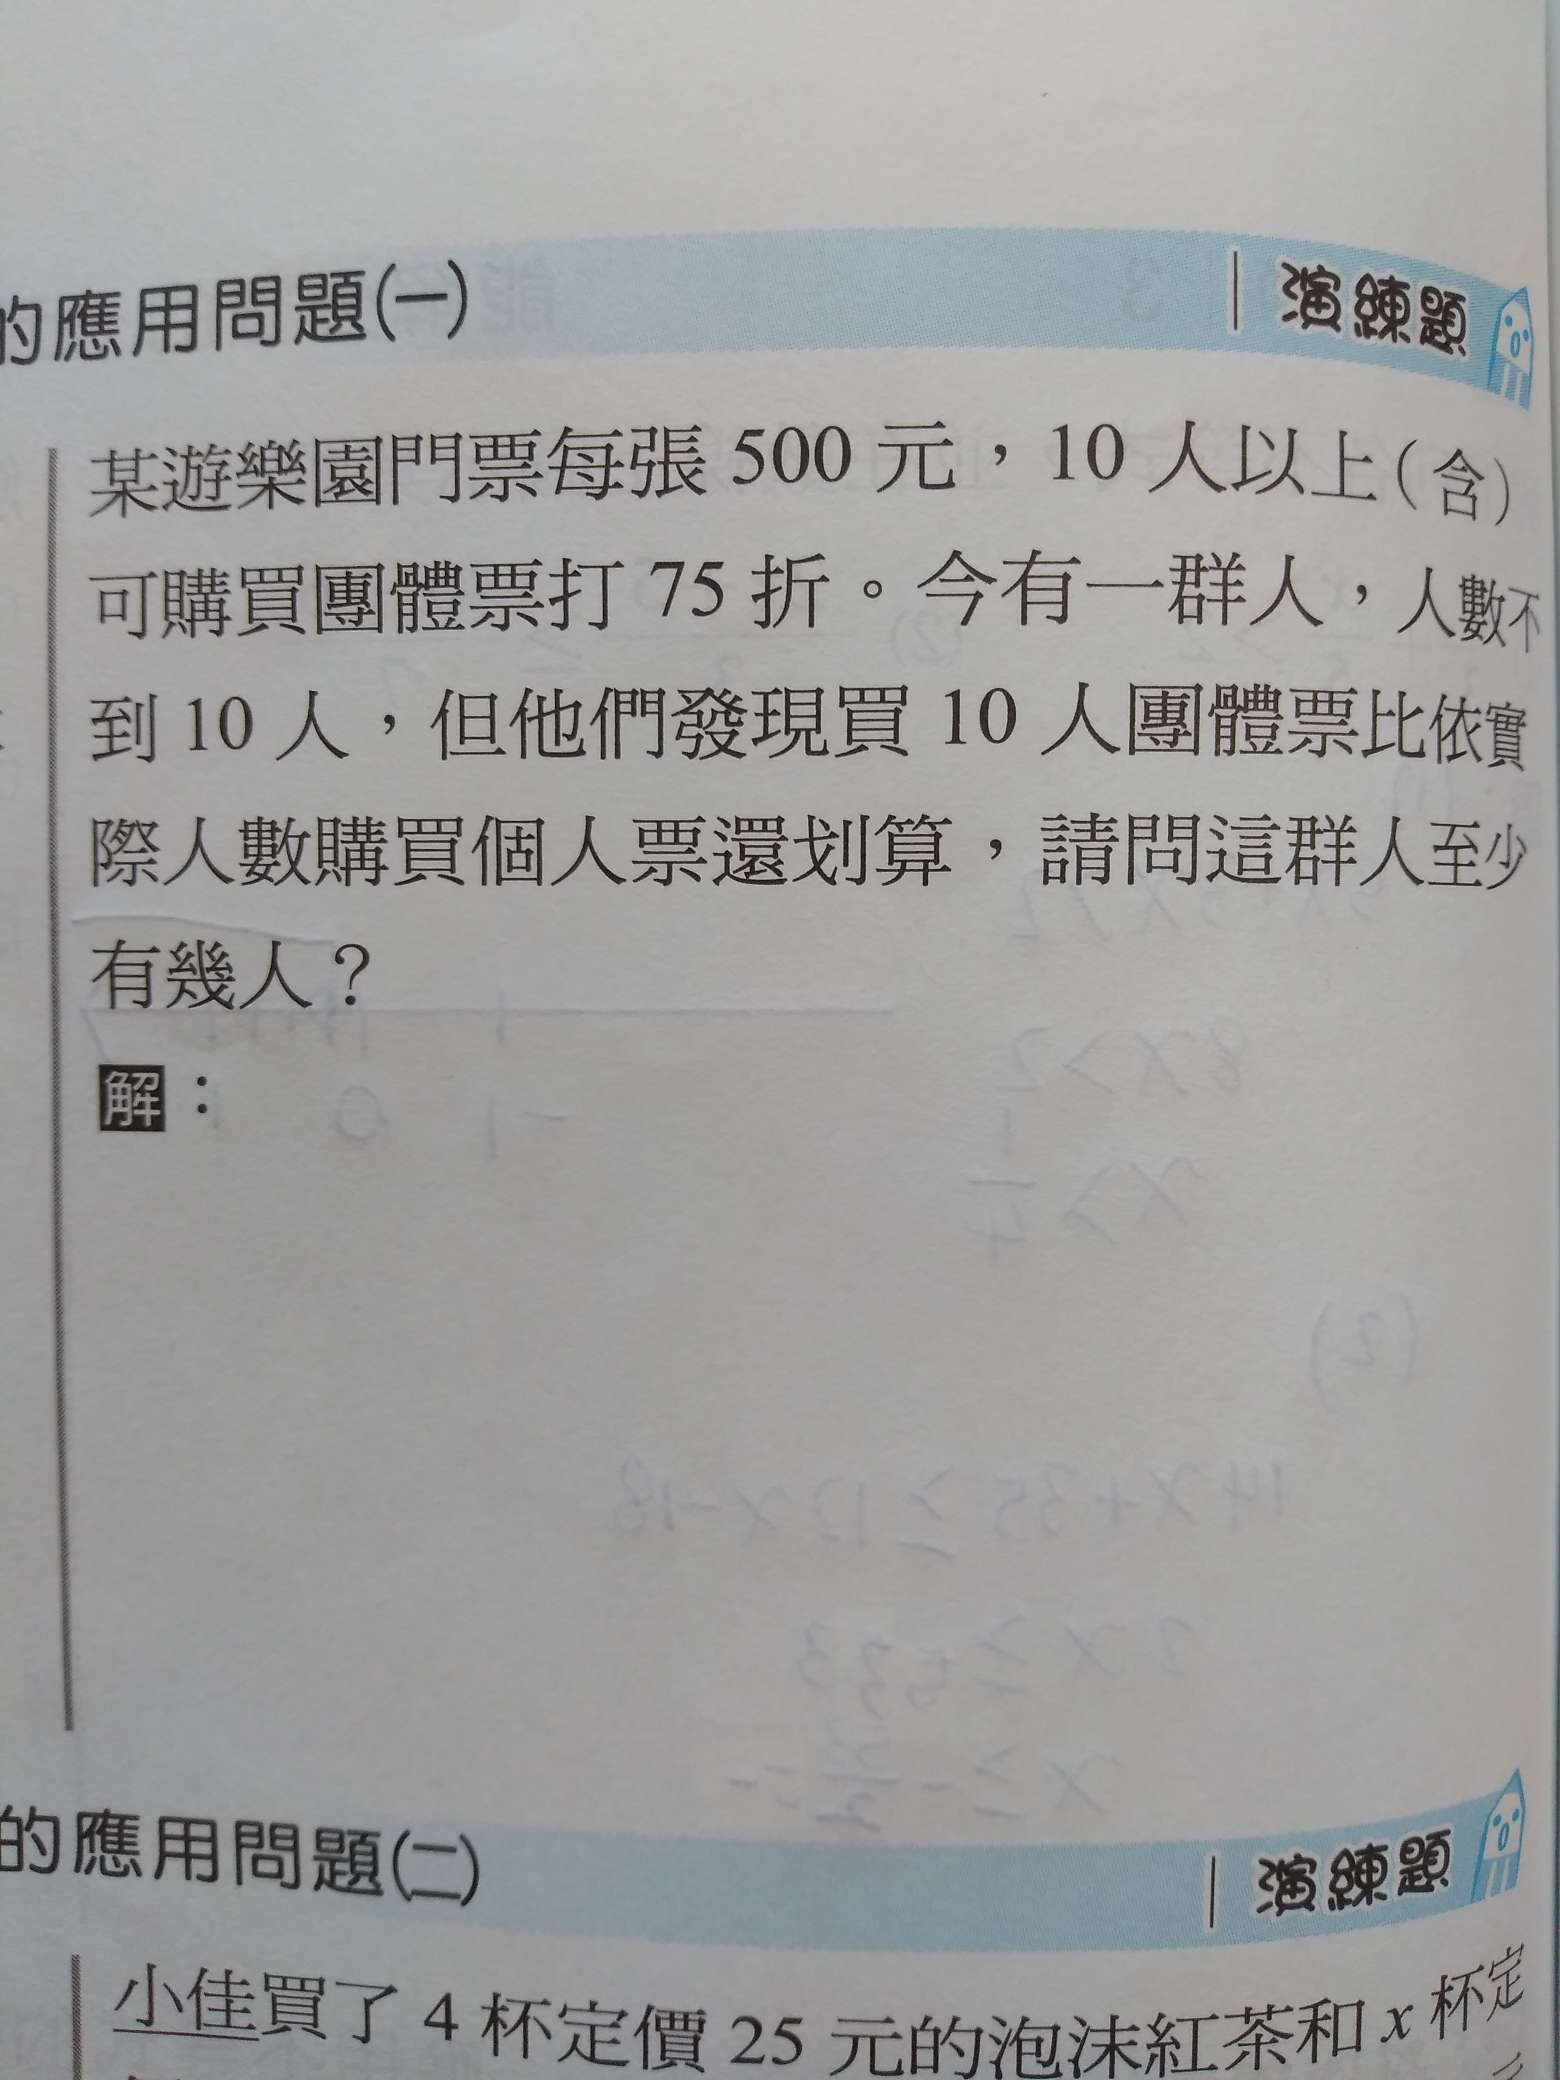 的應用問題(一)
演練題
某遊樂園門票每張 500 元，10 人以上(含)
可購買團體票打 75 折。今有一群人，人數不
到 10 人，但他們發現買 10 人團體票比依實
際人數購買個人票還划算，請問這群人至少
有幾人？
解：
的應用問題(二)
演練題
小佳買了 4 杯定價 25 元的泡沫紅茶和 x 杯定